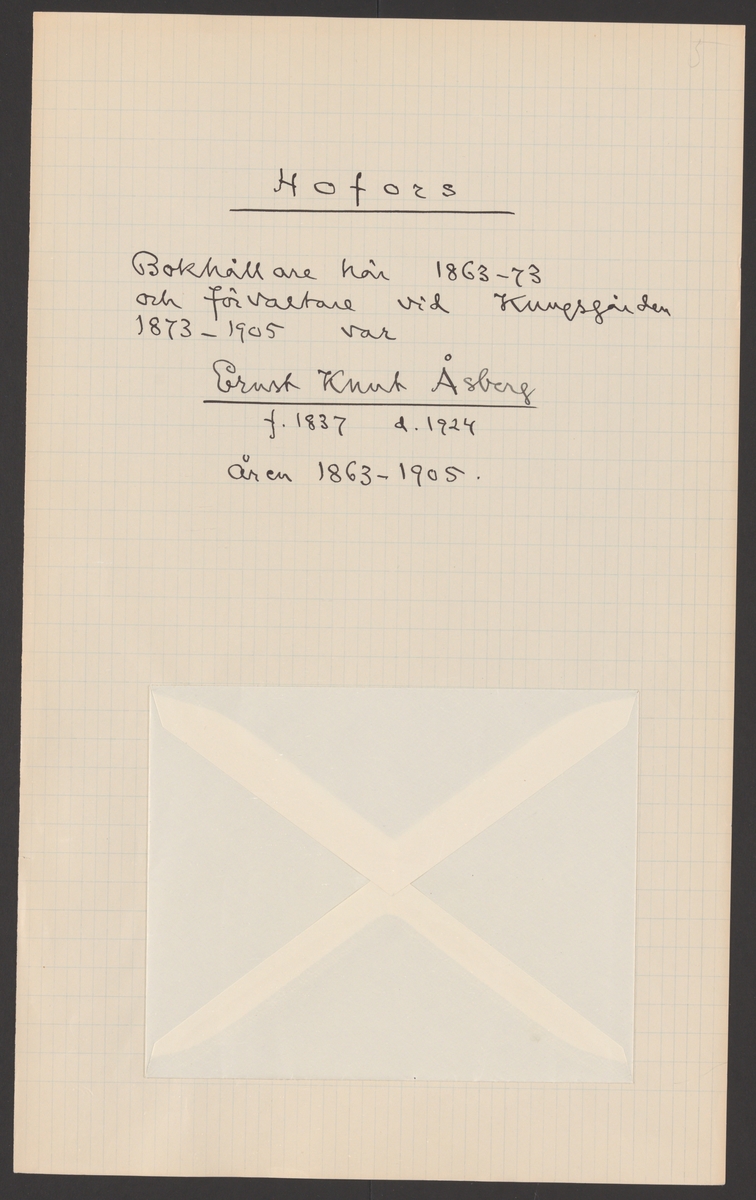 5
Hofors
Bokhållare här 1863-73
och förvaltare vid Kungsgården
1873-1905 var
Ernst Knut Åsberg
f. 1837 d. 1924
åren 1863-1905.